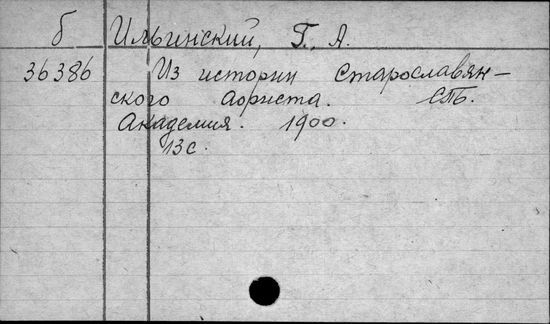 б Ильинский, Г. А.
36386 Из истории старославян-
ского аориста. СПб.
Академия. 1900.
13 с.